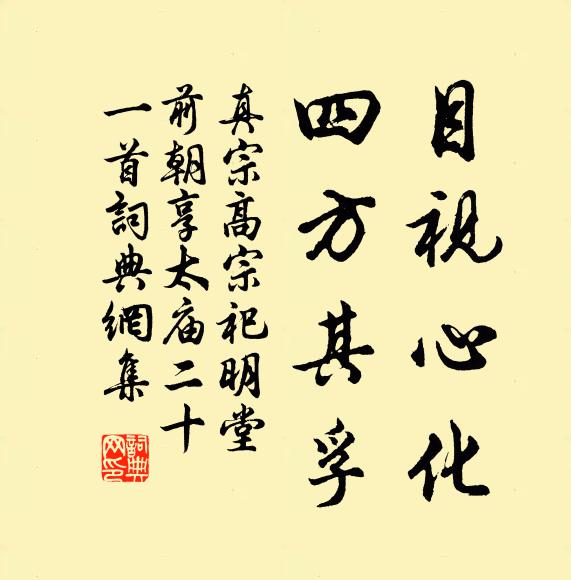 目視心化
四方其孚
真宗高宗祀明堂
前朝享太庙二十
一首詞典網集
詞典
网印